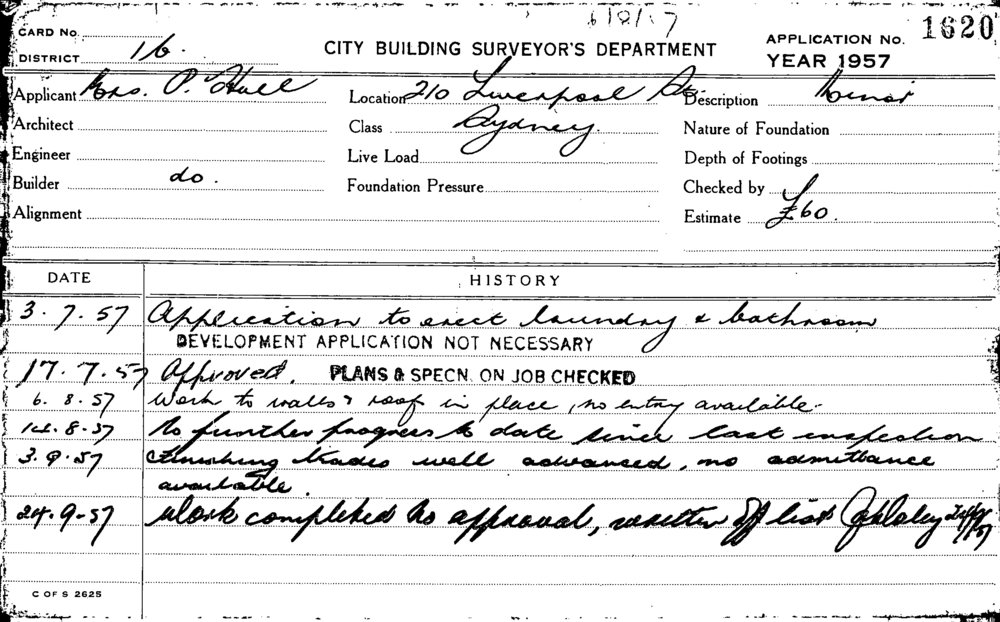 6/8/57
CARD No.
DISTRICT 16.
CITY BUILDING SURVEYOR'S DEPARTMENT
APPLICATION No. 1620
YEAR 1957
Applicant Mrs. P. Hull
Location 210 Liverpool St.
Description Minor
Architect
Class Sydney.
Nature of Foundation
Engineer
Live Load
Depth of Footings
Builder do.
Foundation Pressure
Checked by
Alignment
Estimate £60.
DATE HISTORY
3.7.57 Application to erect laundry & bathroom
DEVELOPMENT APPLICATION NOT NECESSARY
17.7.57 Approved. PLANS & SPECN. ON JOB CHECKED
6.8.57 Work to walls & roof in place, no entry available.
14.8.57 No further progress to date since last inspection
3.9.57 Finishing trades well advanced, no admittance
available.
24.9.57 Work completed to approval, written off list
C OF S 2625